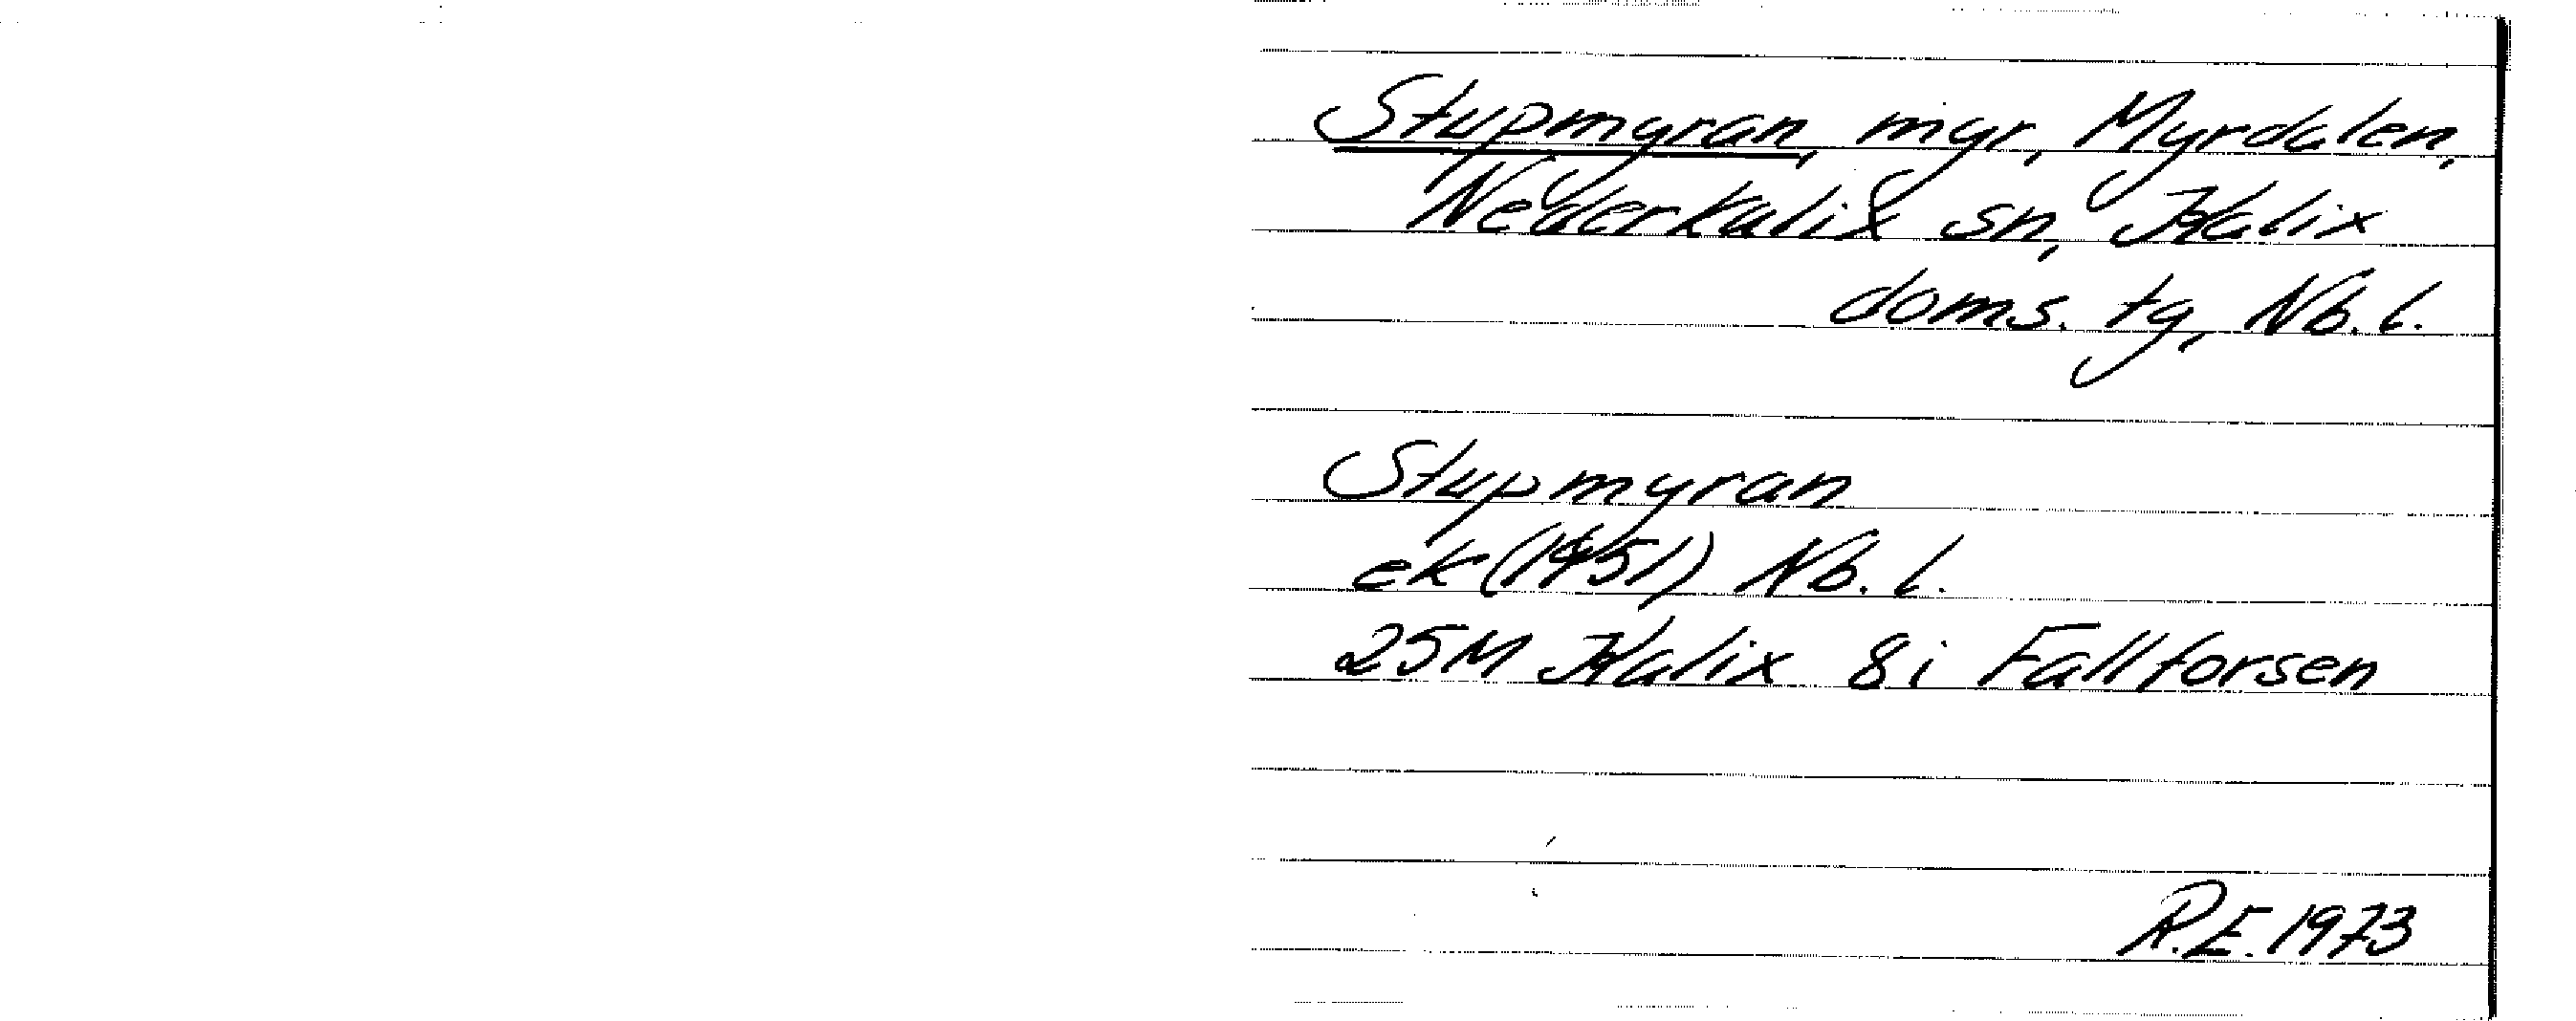 Stupmyran, myr, Myrdalen,
Nederkalix sn, Kalix
doms. tg, Nb. l.
Stupmyran
ek (1951) Nb. l.
25M Kalix 8i Fallforsen
R.E. 1973